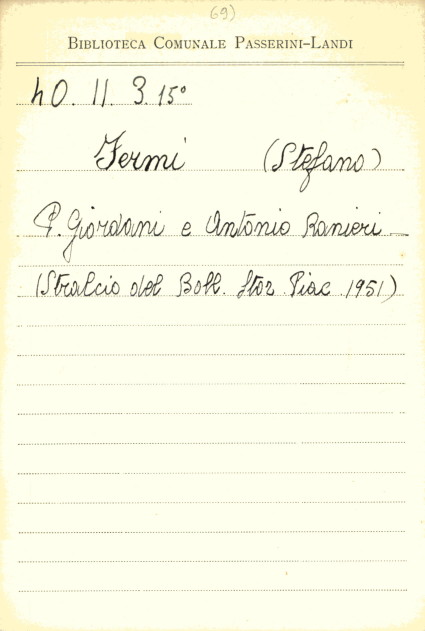 69)
BIBLIOTECA COMUNALE PASSERINI-LANDI
40. II. 3. 15°
Fermi (Stefano)
P. Giordani e Antonio Ranieri -
(Stralcio del Boll. Stor. Piac. 1951)